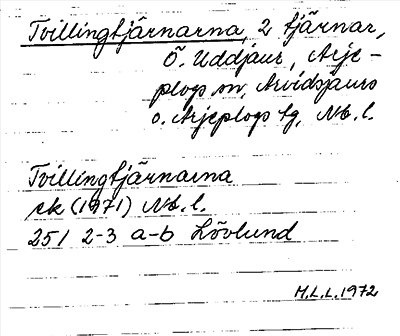 Tvillingtjärnarna, 2 tjärnar,
Ö. Uddjaur, Arje-
plogs sn, Arvidsjaurs
o. Arjeplogs tg, Nb. l.
Tvillingtjärnarna
ek (1971) Nb. l.
251 2-3 a-b Lövlund
M.L.L. 1972